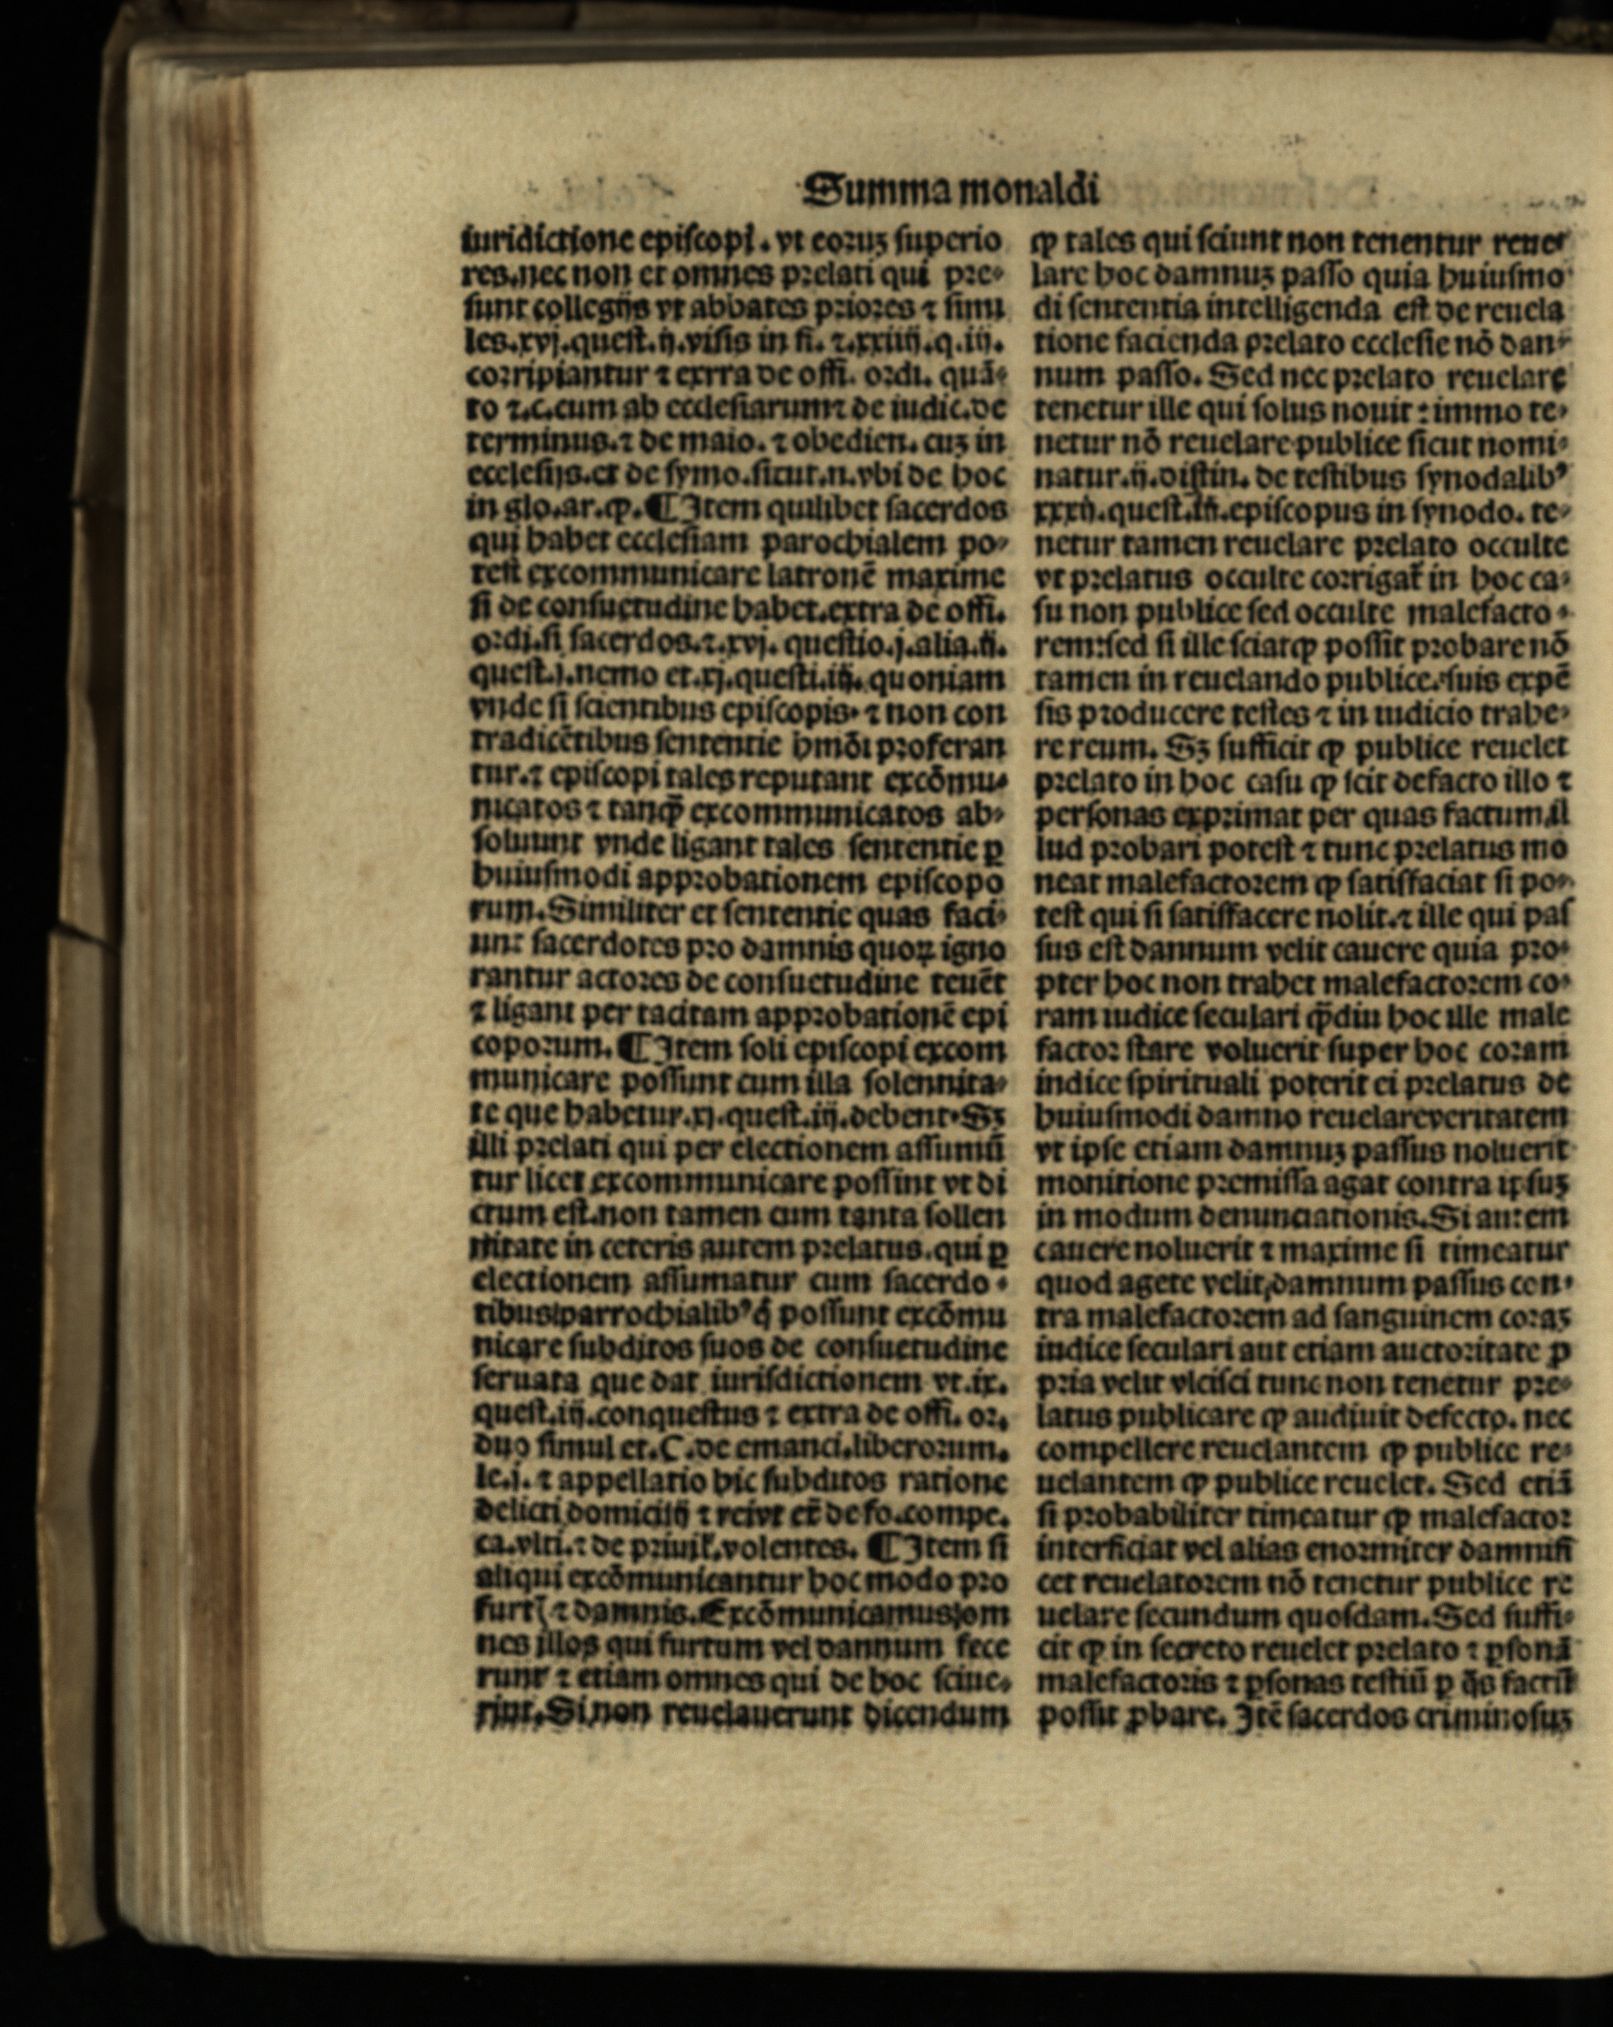 Summa monaldi
iuridictione episcopi. vt eoruʒ superio
res.nec non et omnes prelati qui pre⸗
sunt collegijs vt abbates priores ⁊ simi
les.xvj.quest.ij.visis in fi. ⁊.xxiiij.q.iij.
corripiantur ⁊ exrra de offi. ordi. quā⸗
to ⁊.c.cum ab ecclesiarum⁊ de iudic.de
terminus.⁊ de maio. ⁊ obedien. cuʒ in
ecclesijs.et de symo.sicut.n.vbi de hoc
in glo.ar.ꝙ.¶Item quilibet sacerdos
qui habet ecclesiam parochialem po⸗
test excommunicare latronē maxime
si de consuetudine habet.extra de offi.
ordi.si sacerdos.⁊.xvj. questio.j.alia.ij.
quest.j.nemo et.xj.questi.iij.quoniam
vnde si scientibus episcopis. ⁊ non con
tradicētibus sententie hmōi proferan
tur.⁊ episcopi tales reputant excōmu⸗
nicatos ⁊ tanqꝫ̄ excommunicatos ab⸗
soluunt vnde ligant tales sententie ꝑ
huiusmodi approbationem episcopo
rum.Similiter et sententie quas faci⸗
unt sacerdotes pro damnis quoꝝ igno
rantur actores de consuetudine teuēt
⁊ ligant per tacitam approbationē epi
coporum.¶Item soli episcopi excom
municare possunt cum illa solennita⸗
te que habetur.xj.quest.iij.debent.Sʒ
illi prelati qui per electionem assumū
tur licet excommunicare possint vt di
ctum est.non tamen cum tanta sollen
nitate in ceteris autem prelatus.qui ꝑ
electionem assumatur cum sacerdo⸗
tibus parrochialibꝰ q̇ possunt excōmu
nicare subditos suos de consuetudine
seruata que dat iurisdictionem vt.ix.
quest.iij.conquestus ⁊ extra de offi. or.
duo simul et.C.de emanci.liberorum.
le.j. ⁊ appellatio hic subditos ratione
delicti domicilij ⁊ reivt et̄ de fo.compe.
ca.vlti.⁊ de priuil̄.volentes. ¶Item si
aliqui excōmunicantur hoc modo pro
furt ⁊ damnis.Excōmunicamus om
nes illos qui furtum vel dannum fece
runt ⁊ etiam omnes qui de hoc sciue⸗
rint.Si non reuelauerunt dicendum
ꝙ tales qui sciunt non tenentur reue⸗
lare hoc damnuʒ passo quia huiusmo
di sententia intelligenda est de reuela
tione facienda prelato ecclesie nō dan⸗
num passo. Sed nec prelato reuelare
tenetur ille qui solus nouit : immo te⸗
netur nō reuelare publice sicut nomi⸗
natur.ij.distin. de testibus synodalibꝰ
xxxv.quest.episcopus in synodo. te⸗
netur tamen reuelare prelato occulte
vt prelatus occulte corrigat̄ in hoc ca⸗
su non publice sed occulte malefacto⸗
rem:sed si ille sciat ꝙ possit probare nō
tamen in reuelando publice.suis expē
sis producere testes ⁊ in iudicio trahe⸗
re reum. Sʒ sufficit ꝙ publice reuelet
prelato in hoc casu ꝙ scit defacto illo ⁊
personas exprimat per quas factum il
lud probari potest ⁊ tunc prelatus mo
neat malefactorem ꝙ satisfaciat si po⸗
test qui si satisfacere nolit.⁊ ille qui pas
sus est dannum velit cauere quia pro⸗
pter hoc non trahet malefactorem co⸗
ram iudice seculari qꝫ̄diu hoc ille male
factor stare voluerit super hoc coram
iudice spirituali poterit ei prelatus de
huiusmodi damno reuelareveritatem
vt ipse etiam damnuʒ passus noluerit
monitione premissa agat contra ipsuʒ
in modum denunciationis.Si autem
cauere noluerit ⁊ maxime si timeatur
quod agete velit damnum passus con⸗
tra malefactorem ad sanguinem coraʒ
iudice seculari aut etiam auctoritate ꝓ
pria velit vlcisci tunc non tenetur pre⸗
latus publicare ꝙ audiuit defecto. nec
compellere reuelantem ꝙ publice re⸗
uelantem ꝙ publice reuelet. Sed etiā
si probabiliter timeatur ꝙ malefactor
interficiat vel alias enormiter damnifi
cet reuelatorem nō tenetur publice re
uelare secundum quosdam.Sed suffi⸗
cit ꝙ in secreto reuelet prelato ⁊ ꝑsonā
malefactoris ⁊ ꝑsonas testiū ꝑ q̄s factū
possit ꝓbare. Itē sacerdos criminosuʒ